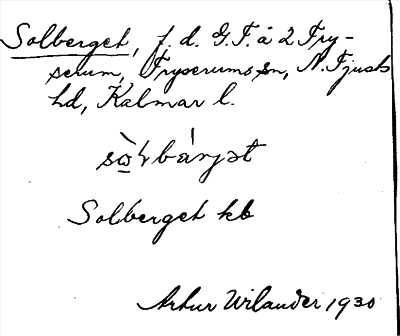 Solberget, f. d. G.T. å 2 Fry-
serum, Fryserums sn, N. Tjusts
hd, Kalmar l.
sò̲ɬbárjət
Solberget kb
Artur Wilander 1930